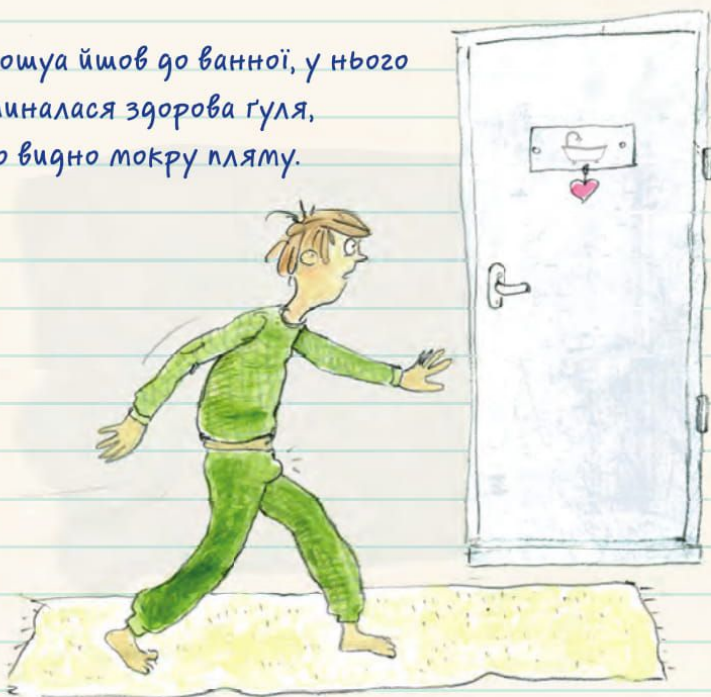 ошуа йшов до ванної, у нього
иналася здорова ґуля,
о видно мокру пляму.